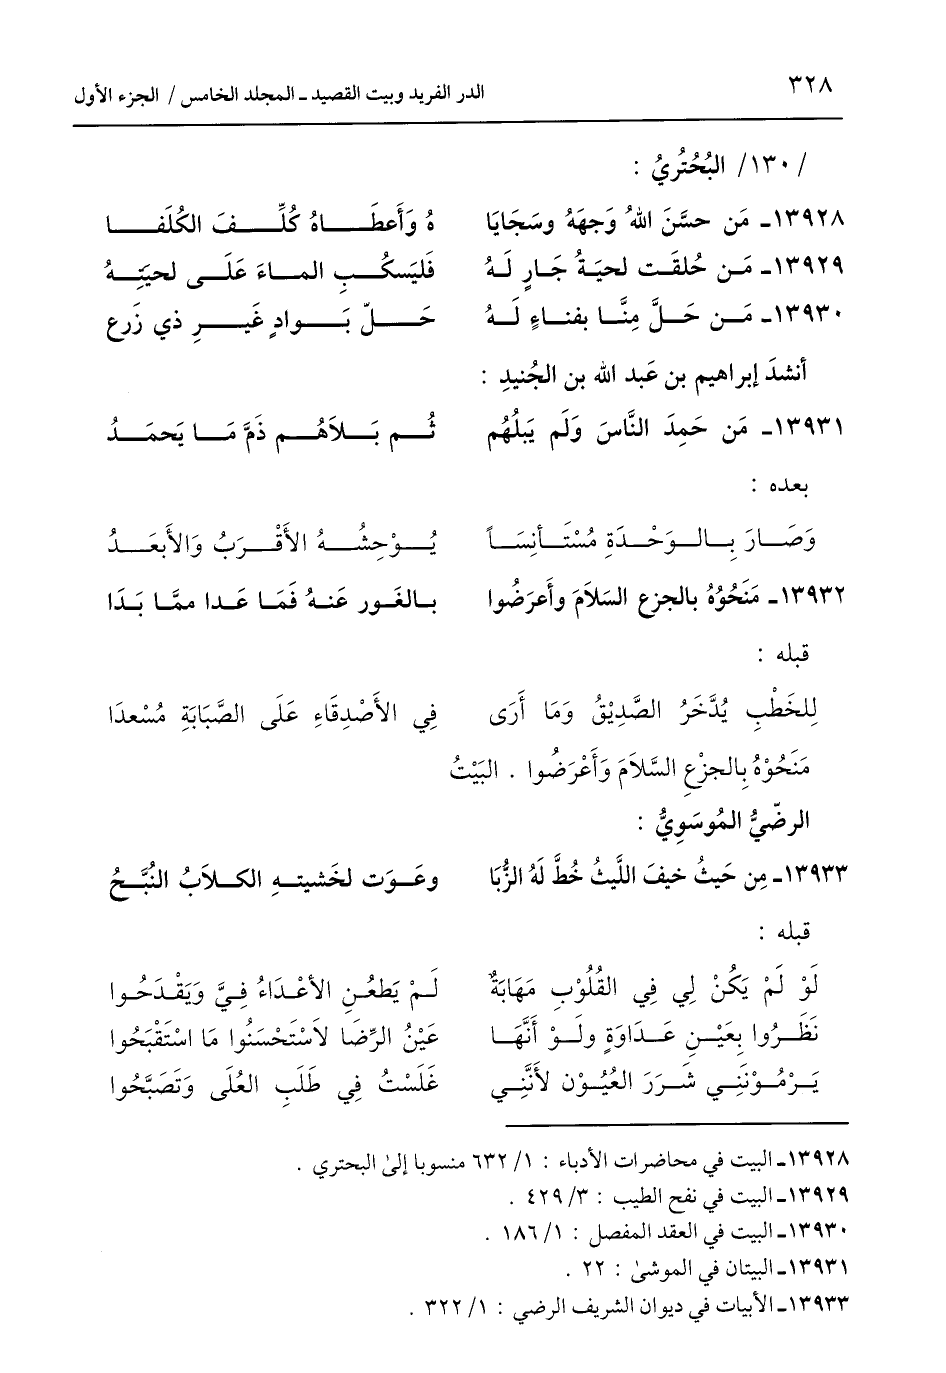 ٣٢٨
الدر الفريد وبيت القصيد ـ المجلد الخامس / الجزء الأول
/ ١٣٠/ البُحْتُرِيُ :
١٣٩٢٨ـ مَن حسَّنَ اللهُ وَجهَهُ وسَجَايَا هُ وَأَعطَاهُ كُلِّفَ الكُلَفَا
١٣٩٢٩ـ مَن حُلقَت لحيَةُ جَارٍ لَهُ فَليَسكُبِ الماءَ عَلَى لحيَتِهُ
١٣٩٣٠ـ مَن حَلَّ مِنَّا بفناءٍ لَهُ حَلّ بَوادٍ غَيرِ ذي زَرع
أنشدَ إبراهيم بن عَبد الله بن الجُنيدِ :
١٣٩٣١ـ مَن حَمِدَ النَّاسَ وَلَم يَبلُهُم ثُم بَلاَهُم ذَمَّ مَا يَحمَدُ
بعده :
وَصَارَ بِالوَحْدَةِ مُسْتَأنِسَاً يُوْحِشُهُ الأَقْرَبُ وَالأَبعَدُ
١٣٩٣٢ـ مَنَحُوُهُ بالجزع السَلاَمَ وأَعرَضُوا بالغَور عَنهُ فَمَا عَدا ممَّا بَدَا
قبله :
لِلخَطْبِ يُدَّخَرُ الصَّدِيْقُ وَمَا أَرَى فِي الأَصْدِقَاءِ عَلَى الصَّبَابَةِ مُسْعدَا
مَنَحُوْهُ بِالجزْعِ السَّلاَمَ وَأَعْرَضُوا . البَيْتُ
الرضّيُّ المُوسَوِيُّ :
١٣٩٣٣ـ مِن حَيثُ خيفَ اللَّيثُ خُطَّ لَهُ الزُّبَا وعَوَت لخَشيتهِ الكلاَبُ النُبَّحُ
قبله :
لَوْ لَمْ يَكُنْ لِي فِي القُلُوْبِ مَهَابَةٌ لَمْ يَطعُنِ الأعْدَاءُ فِيَّ وَيَقْدَحُوا
نَظَرُوا بِعَيْنِ عَدَاوَةٍ ولَوْ أَنَّهَا عَيْنُ الرِّضَا لاَسْتَحْسَنُوا مَا اسْتَقْبَحُوا
يَرْمُوْنَنِي شَرَرَ العُيُوْن لأَنَّنِي غَلَسْتُ فِي طَلَبِ العُلَى وَتَصَبَّحُوا
١٣٩٢٨ـ البيت في محاضرات الأدباء : ١/ ٦٣٢ منسوبا إلىٰ البحتري .
١٣٩٢٩ـ البيت في نفح الطيب : ٣/ ٤٢٩ .
١٣٩٣٠ـ البيت في العقد المفصل : ١/ ١٨٦ .
١٣٩٣١ـ البيتان في الموشىٰ : ٢٢ .
١٣٩٣٣ـ الأبيات في ديوان الشريف الرضي : ١/ ٣٢٢ .